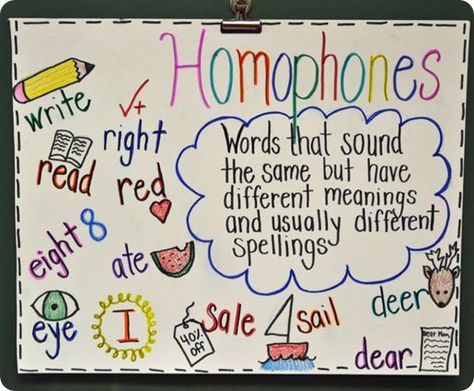 Homophones
write
right
Words that sound
the same but have
different meanings
and usually different
spellings
read
red
eight 8
ate
eye
I
40%
off
sale
sail
deer
dear
Dear Mom,